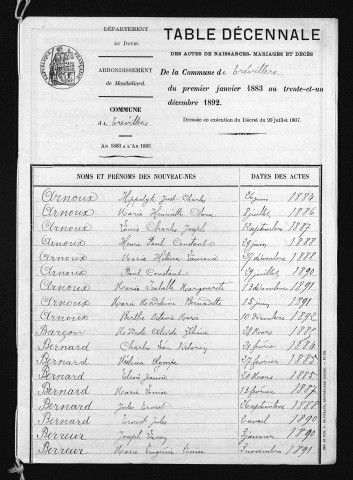 DÉPARTEMENT
du Doubs
ARRONDISSEMENT
de Montbéliard.
COMMUNE
de Trévillers
AN 1883 A L'AN 1893
TABLE DÉCENNALE
DES ACTES DE NAISSANCES, MARIAGES ET DÉCÈS
De la Commune de Trévillers
du premier janvier 1883 au trente-et-un
décembre 1892.
Dressée en exécution du Décret du 20 juillet 1807.
NOMS ET PRÉNOMS DES NOUVEAU-NÉS DATES DES ACTES
Arnoux Hippolyte Just Charles juin 1884
Arnoux Marie Henriette 8 juillet 1886
Arnoux Louis Charles Joseph septembre 1887
Arnoux Henri Paul Constant 29 juin 1888
Arnoux Marie Hélina décembre 1888
Arnoux Paul Constant 19 juillet 1890
Arnoux Maria Isabelle Marguerite décembre 1891
Arnoux Marie Madeleine Bernadette 15 juin 1891
Arnoux Berthe Marie 10 décembre 1892
Barçon Mars 1885
Bernard Charles février 1884
Bernard Olympe 27 février 1885
Bernard Mars 1885
Bernard Marie février 1887
Bernard Jules Ernest septembre 1888
Bernard Ernest Jules avril 1890
Berreur Joseph janvier 1890
Berreur Marie Eugénie novembre 1891